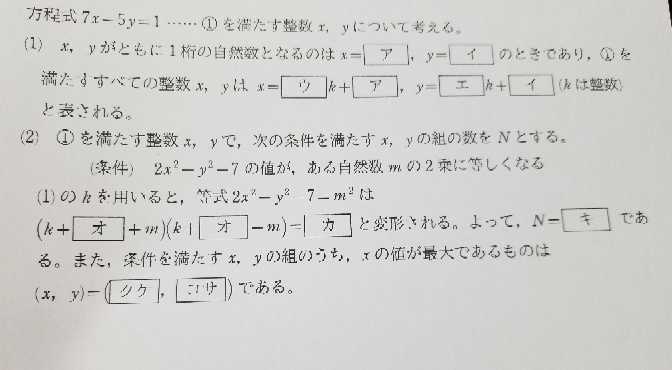 方程式 7x−5y=1 …… ① を満たす整数 x, y について考える。
(1) x, y がともに1桁の自然数となるのは x= ア , y= イ のときであり, ① を
満たすすべての整数 x, y は x= ウ k+ ア , y= エ k+ イ (k は整数)
と表される。
(2) ① を満たす整数 x, y で, 次の条件を満たす x, y の組の数を N とする。
(条件) 2x²−y²−7 の値が, ある自然数 m の2乗に等しくなる
(1) の k を用いると, 等式 2x²−y²−7=m² は
(k+ オ +m)(k+ オ −m)= カ と変形される。よって, N= キ であ
る。また, 条件を満たす x, y の組のうち, x の値が最大であるものは
(x, y)=( クケ , コサ ) である。